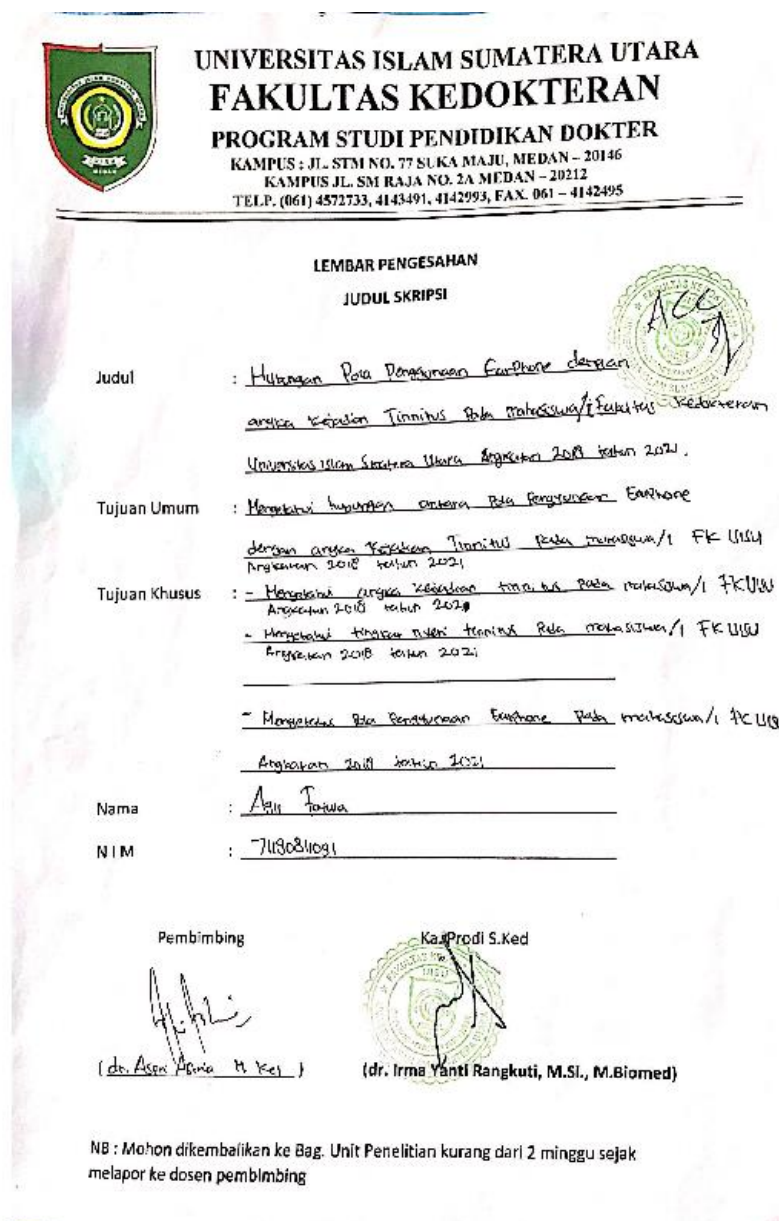 UNIVERSITAS ISLAM SUMATERA UTARA
FAKULTAS KEDOKTERAN
PROGRAM STUDI PENDIDIKAN DOKTER
KAMPUS : JL. STM NO. 77 SUKA MAJU, MEDAN – 20146
KAMPUS JL. SM RAJA NO. 2A MEDAN – 20212
TELP. (061) 4572733, 4143491, 4142993, FAX. 061 – 4142495
LEMBAR PENGESAHAN
JUDUL SKRIPSI
ACC
Judul : Hubungan Pola Penggunaan Earphone dengan
angka Kejadian Tinnitus Pada mahasiswa/i Fakultas Kedokteran
Universitas Islam Sumatera Utara Angkatan 2018 tahun 2021.
Tujuan Umum : Mengetahui hubungan antara Pola Penggunaan Earphone
dengan angka Kejadian Tinnitus Pada mahasiswa/i FK UISU
Angkatan 2018 tahun 2021
Tujuan Khusus : - Mengetahui angka Kejadian tinnitus Pada mahasiswa/i FK UISU
Angkatan 2018 tahun 2021
- Mengetahui tingkat tinnitus Pada mahasiswa/i FK UISU
Angkatan 2018 tahun 2021
- Mengetahui Pola Penggunaan Earphone Pada mahasiswa/i FK UIS
Angkatan 2018 tahun 2021
Nama :
NIM :
Pembimbing Ka. Prodi S.Ked
(dr. M Kes) (dr. Irma Yanti Rangkuti, M.Si., M.Biomed)
NB : Mohon dikembalikan ke Bag. Unit Penelitian kurang dari 2 minggu sejak
melapor ke dosen pembimbing